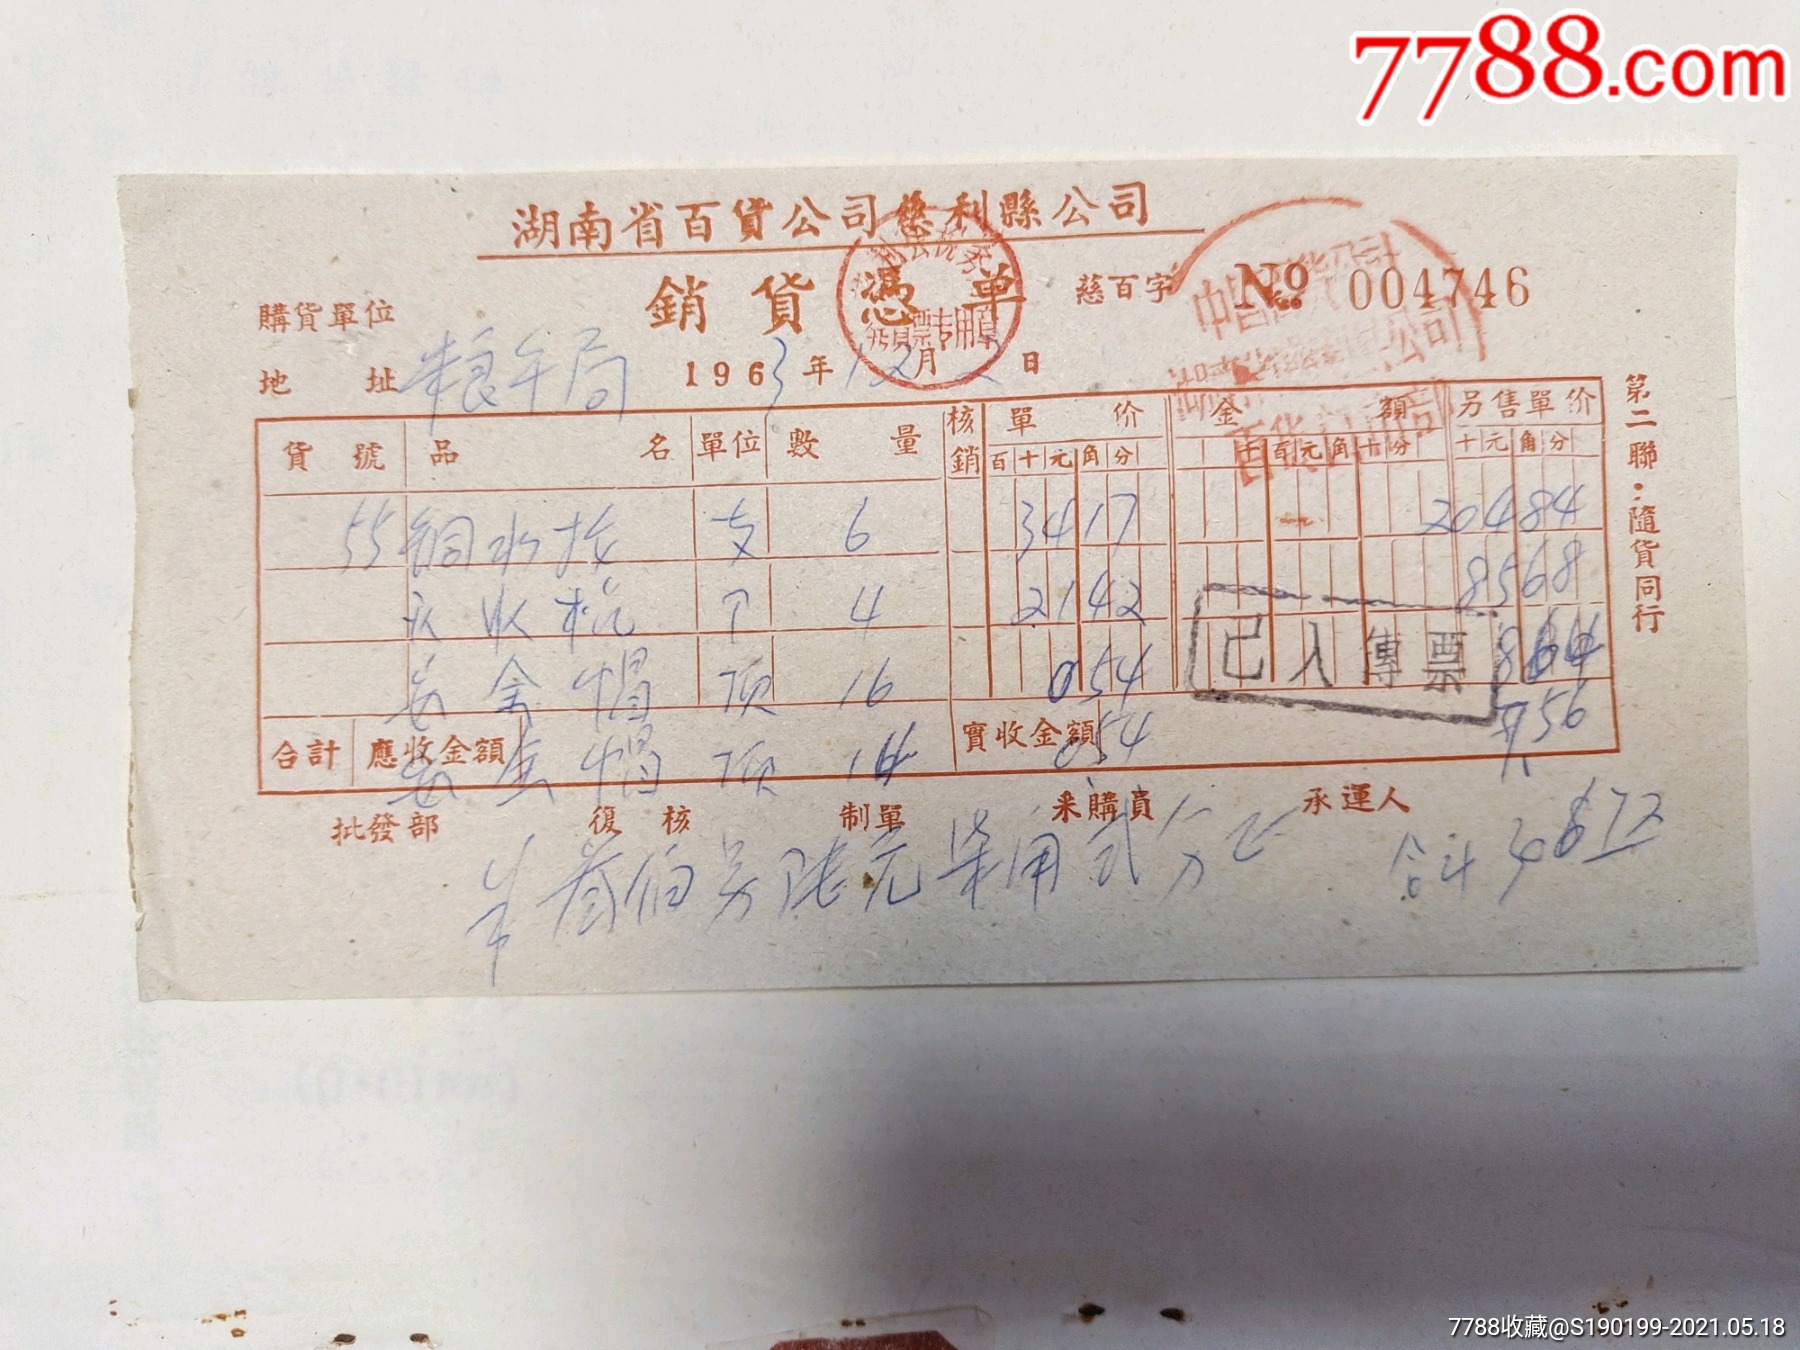 7788.com
湖南省百貨公司慈利縣公司
銷貨憑單
慈百字 No 004746
購貨單位
地址 粮午局 1963年12月2日
貨號 品名 單位 數量 核銷 單价 金額 另售單价
百十元角分 千百元角十分 十元角分
55 铜水 支 6 3417 20484
4 2142 8568
安全帽 顶 16 054 864
安全帽 顶 14 054 756
合計 應收金額 實收金額
已入傳票
批發部 復核 制單 采購員 承運人
叁佰另 元柒角貳分正 合计
第二聯：隨貨同行
7788收藏@S190199-2021.05.18